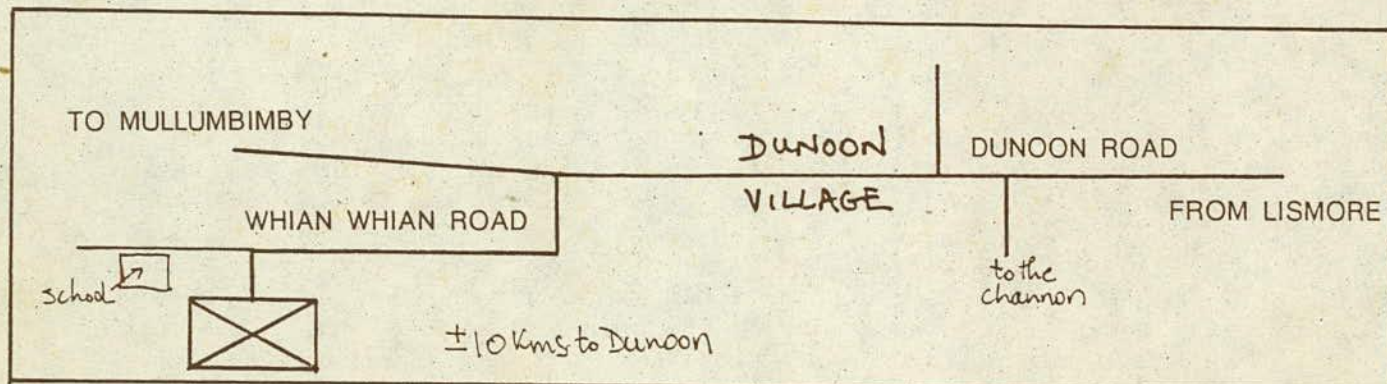 TO MULLUMBIMBY
DUNOON
VILLAGE
DUNOON ROAD
FROM LISMORE
WHIAN WHIAN ROAD
to the
channon
school
±10 Kms to Dunoon